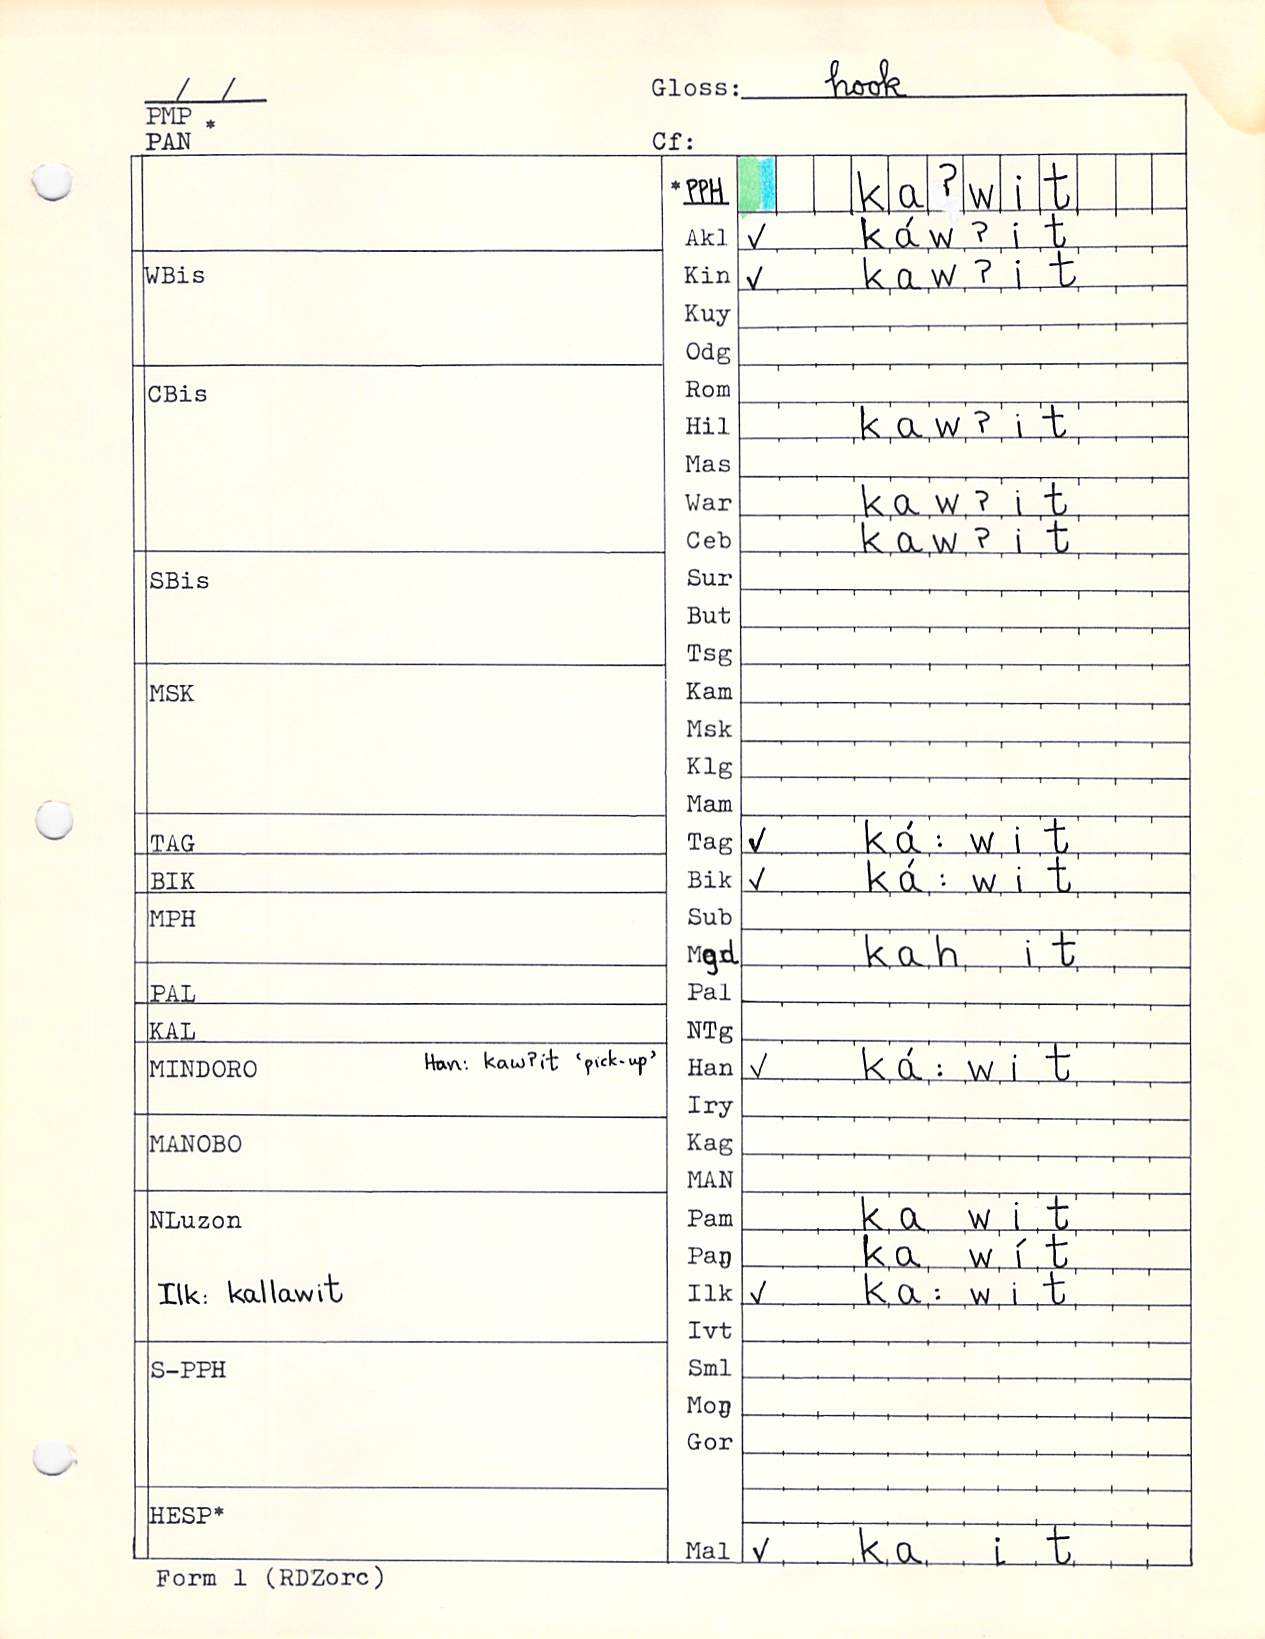 / /
Gloss: hook
PMP *
PAN
Cf:
*PPH ka?wit
Akl ✓ káw?it
WBis
Kin ✓ kaw?it
Kuy
Odg
CBis
Rom
Hil kaw?it
Mas
War kaw?it
Ceb kaw?it
SBis
Sur
But
Tsg
MSK
Kam
Msk
Klg
Mam
TAG
Tag ✓ ká:wit
BIK
Bik ✓ ká:wit
MPH
Sub
Mgd kah it
PAL
Pal
KAL
NTg
MINDORO Han: kaw?it ‘pick-up’
Han ✓ ká:wit
Iry
MANOBO
Kag
MAN
NLuzon
Pam ka wit
Paŋ ka wít
Ilk: kallawit
Ilk ✓ ka:wit
Ivt
S-PPH
Sml
Moŋ
Gor
HESP*
Mal ✓ ka it
Form 1 (RDZorc)